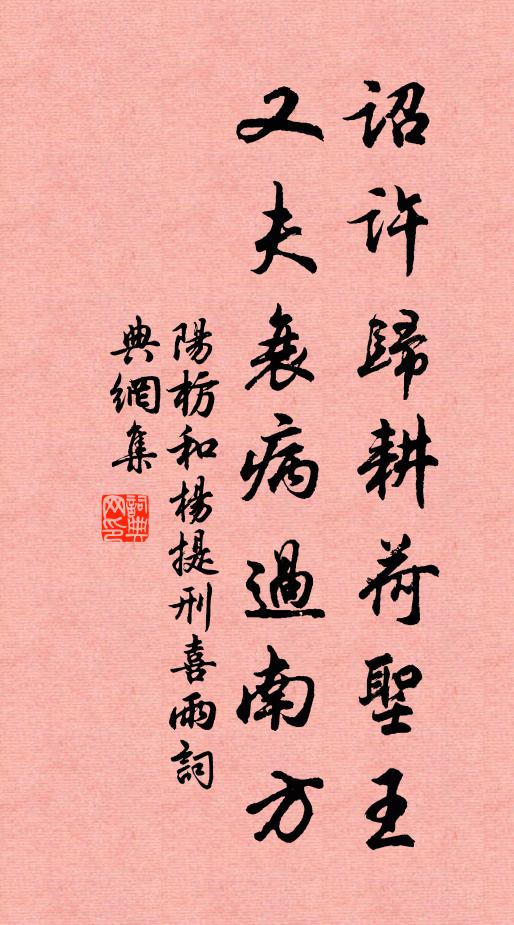 詔許歸耕荷聖王
又夫衰病過南方
陽枋和楊提刑喜雨詞
典網集
詞典网印